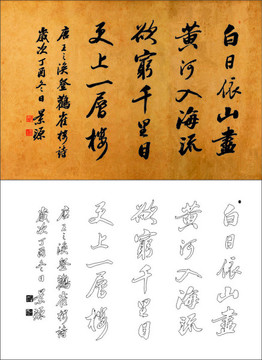 白日依山盡
黄河入海流
欲窮千里目
更上一層樓
唐王之渙登鸛雀樓詩
歲次丁酉冬日景源
白日依山盡
黄河入海流
欲窮千里目
更上一層樓
唐王之渙登鸛雀樓詩
歲次丁酉冬日景源